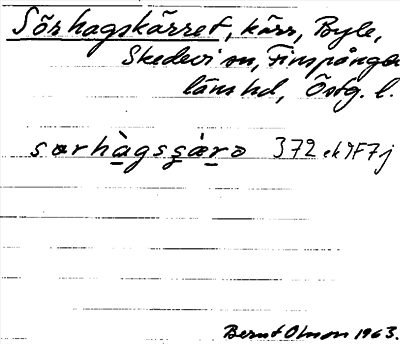 Sörhagskärret, kärr, Byle,
Skedevi sn, Finspånga
läns hd, Östg. l.
sørhàgsşàrə 372 ek 9F7j
Bernt Olsson 1963.